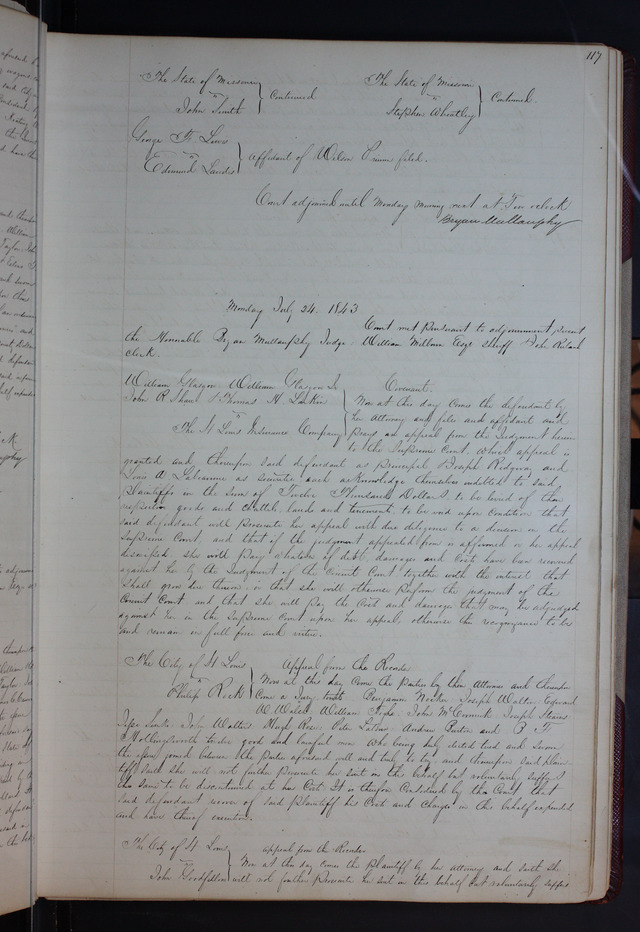 117
The State of Missouri
vs
John Smith } Continued
The State of Missouri
vs
Stephen Wheatley } Continued.
George F. Lewis
vs
Edmund Landis } Affidavit of Wilson Primm filed.
Court adjourned until Monday morning next at Ten oclock
Bryan Mullanphy
Monday July 24. 1843
Court met Pursuant to adjournment present
the Honorable Bryan Mullanphy Judge. William Milburn Esqr Sheriff John Ruland
clerk.
William Glasgow, William Glasgow Jr
John R Shaw & Thomas H. Larkin
vs
The St Louis Insurance Company
Covenant.
Now at this day comes the defendant by
her attorney and files and affidavit and
Prays an appeal from the Judgment herein
to the Supreme Court, which appeal is
granted and thereupon said defendant as Principal Joseph Ridgway and
Louis A. as sureties, each acknowledge themselves indebted to said
Plaintiffs in the sum of Twelve Thousand Dollars, to be levied of their
respective goods and chattels lands and tenements, to be void upon Condition that
said defendant will Prosecute her appeal with due diligence to a decision in the
Supreme Court, and that if the judgment appealed from is affirmed or her appeal
dismissed, she will Pay whatever of debt, damages and Costs have been recovered
against her by the Judgment of the Circuit Court together with the interest that
Shall grow due thereon, or that she will otherwise Perform the judgment of the
Circuit Court. and that she will Pay the Cost and damages that may be adjudged
against her in the Supreme Court upon her appeal, otherwise the recognizance to be
and remain in full force and virtue.
The City of St Louis
vs
Philip Rock
Appeal from the Recorder
Now at this day come the Parties by their Attornies and thereupon
Come a Jury, towit, Benjamin Walter
W. Walsh William John McCormick Joseph
John Walters Hugh Rose Andrew and B F
Hollingsworth twelve good and lawful men who being duly elected tried and Sworn
the issue joined between the Parties aforesaid well and truly to try, and thereupon said plain-
tiff saith she will not further Prosecute her suit in this behalf but voluntarily suffers
the same to be discontinued at her Cost. It is therefore Considered by the Court that
said defendant recover of said Plaintiff his Cost and Charges in this behalf expended
and have thereof execution.
The City of St Louis
vs
John Goodfellow
appeal from the Recorder
Now at this day comes the Plaintiff by her attorney and saith she
will not further Prosecute her suit in this behalf but voluntarily suffers